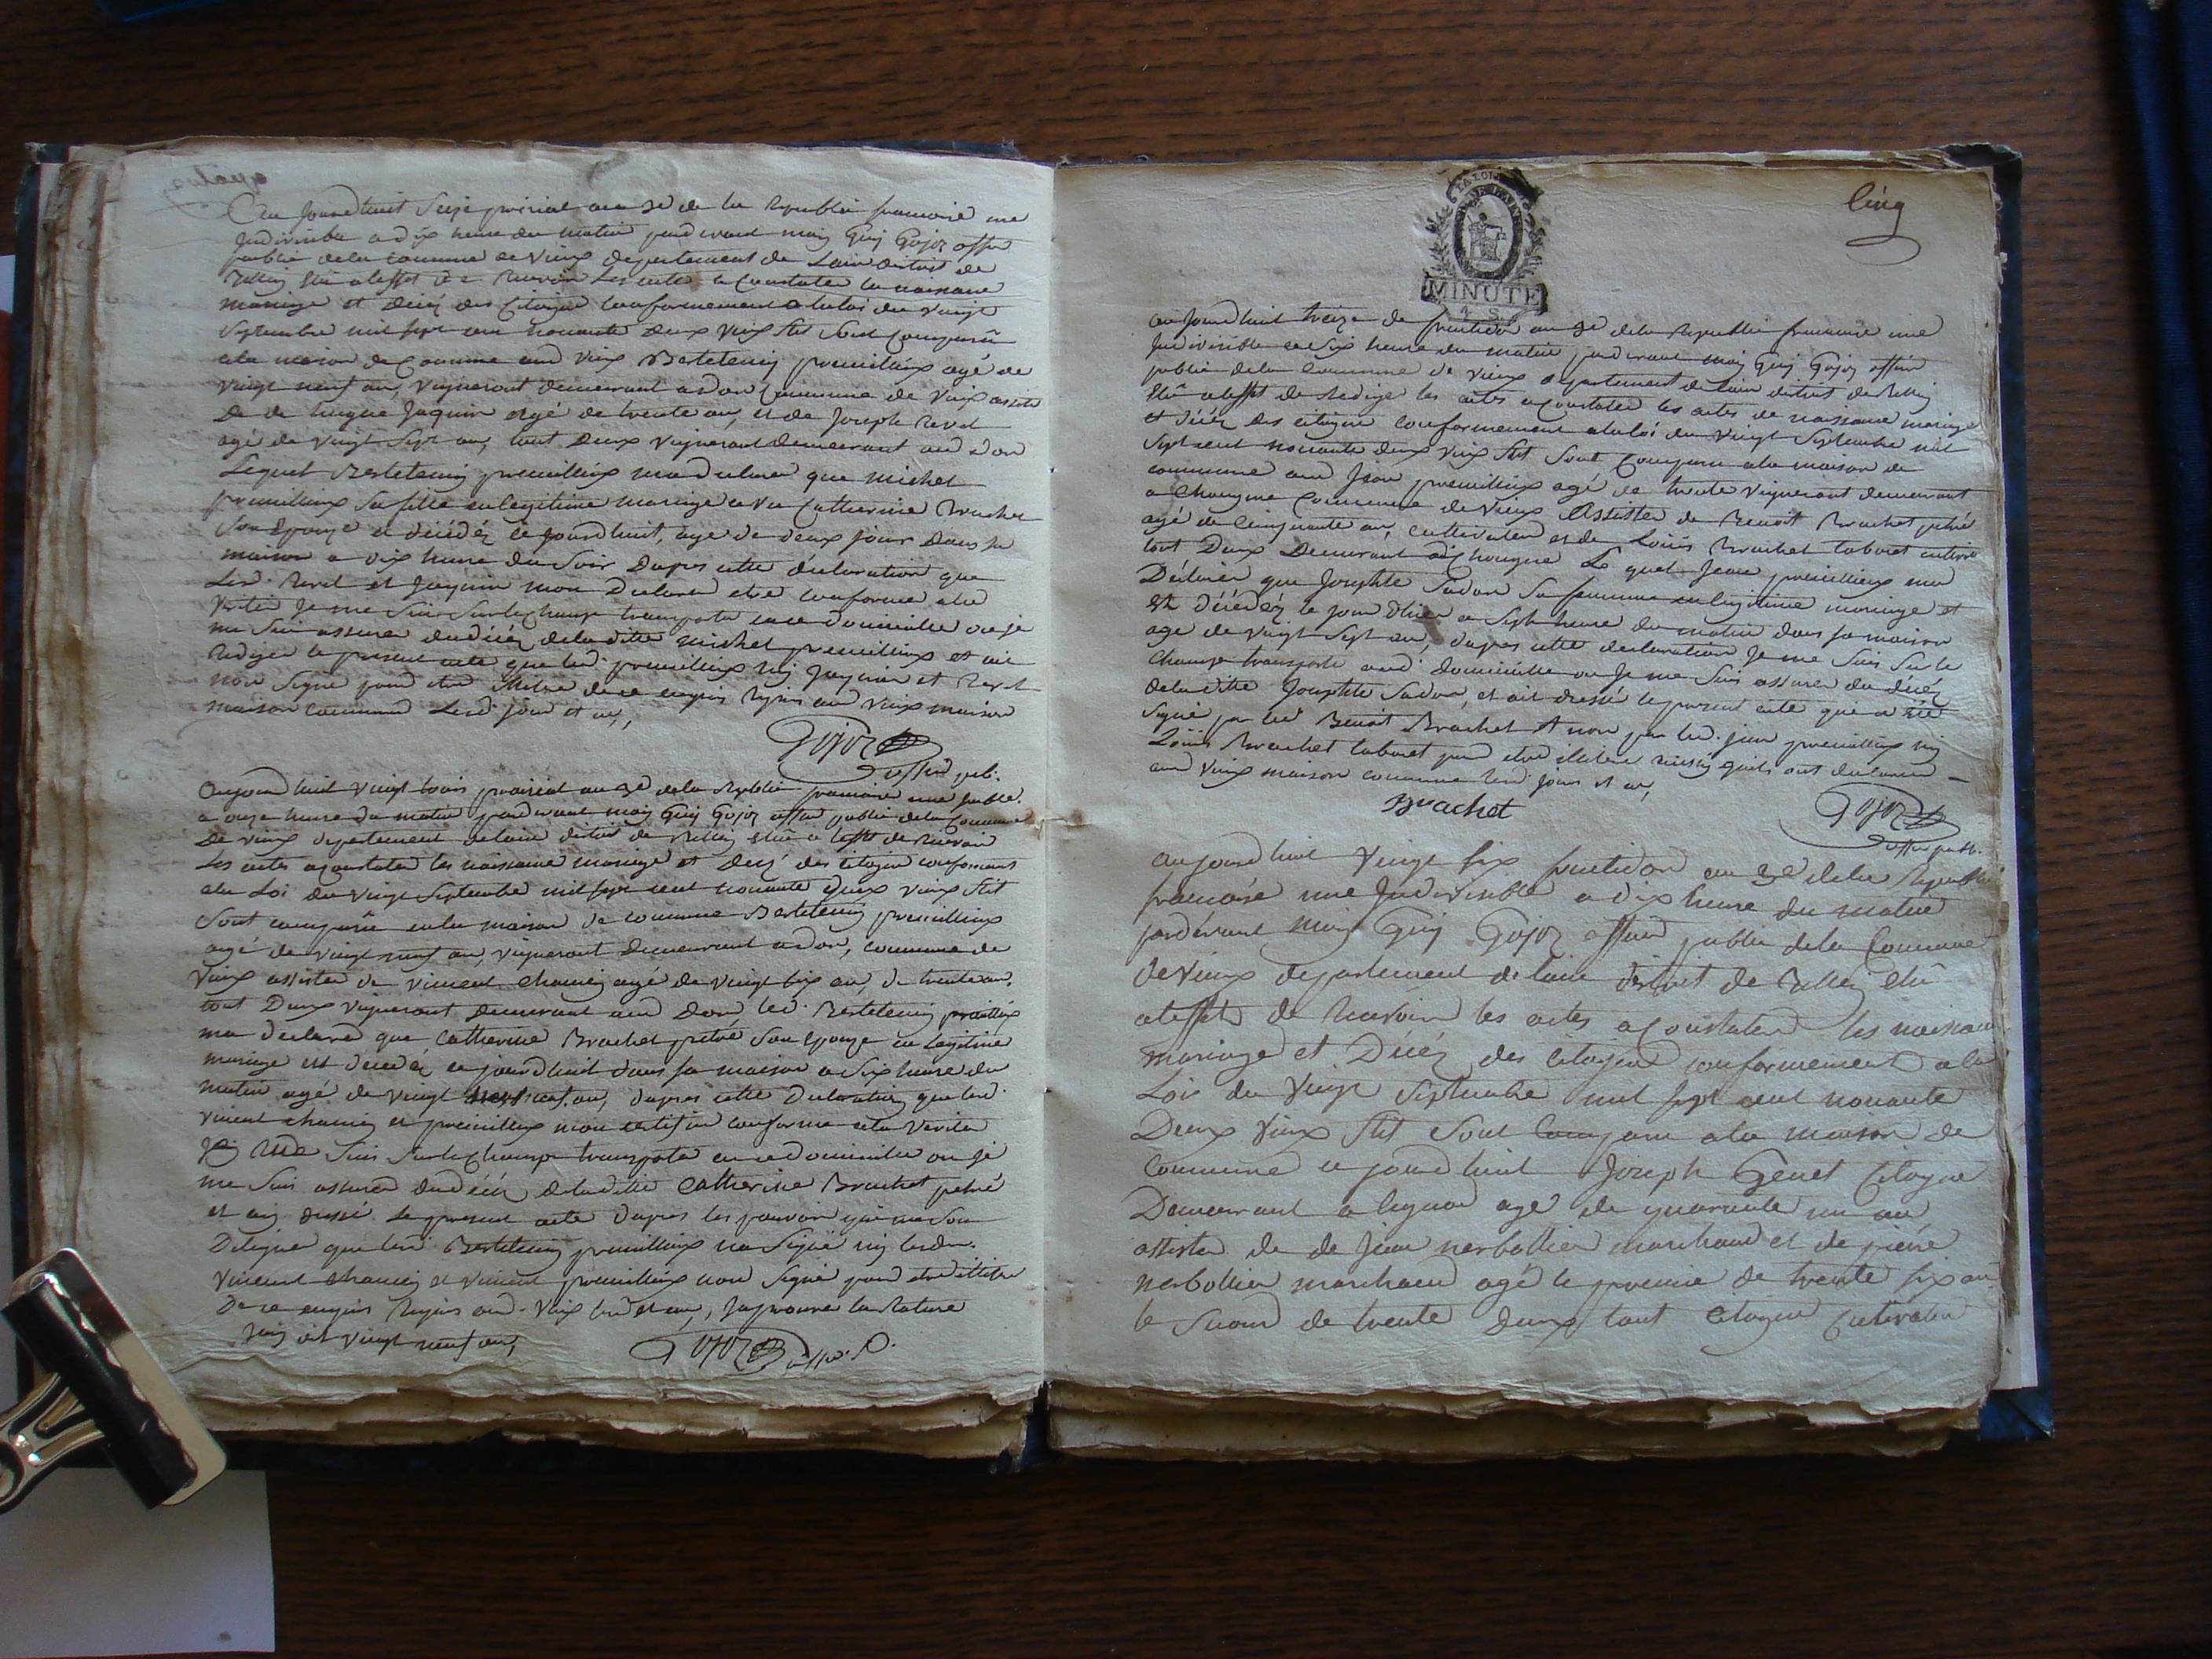 Au Jourdhuit Seize prerial an 3e de la Republi francaise une
Indivisible a dix heure du matin pardevant moy Guy Gojoz offier
public de la commune de Vieux departement de Lain district de
Belley elu a leffet de recevoir les actes a Constater la naissance
mariage et decéz des Citoyen Conformement a la loi du Vingt
Septembre mil sept cen nonante deux vieux Stil Sont Comparû
a la maison de Commune aud Vieux Bertelemy premillieux agé de
Vingt neuf an, Vigneront demeurant a don Commune de Vieux assisté
de de hugue Jaquin agé de trente an, et de Joseph Revel
agé de Vingt Sept an, tout deux Vigneront demeurant aud don
Lequel Bertelemy premillieux ma declaré que michel
premillieux Sa fille en legitime mariage avec Catherine Brachet
Son Epouze et décédéz ce jourdhuit, age de deux jour dans Sa
maison a dix heure du Soir Dapres cette déclaration que
Lesd. Revel et Jaquin mon Declaré etre Conforme a la
Verité Je me Suis Sur le Champ transporté en ce domicille ou je
me Suis assuré du décéz de la ditte michel premillieux et ait
Redigé le present acte que led. premillieux ny Jaquin et Revel
non Signe pour etre illetré de ce enquis Requis aud Vieux maison
Commune Lesd. jour et an,
Gojoz
offier pub.
Aujourdhuit Vingt trois prairial an 3e de la Republi francaise une
a onze heure du matin pardevant moy Guy Gojoz offier public de la Commune
De Vieux departement de lain district de Belley elû a leffet de Recevoir
Les actes a Constater les naissance mariage et decé des Citoyen conformement
a la Loi du Vingt Septembre mil sept cent nonante deux vieux Stil
Sont comparû en la maison de commune Bertelemy premillieux
agé de vingt neuf an, vigneront demeurant a don, commune de
Vieux assisté de vincent chamey agé de vingt six an, de trente an,
tout Deux Vigneront Demeurant aud Don led. Bertelemy premillieux
ma declaré que Catherine Brachet petré Son Epouze en Legitime
mariage est décédéz ce jourdhuit dans Sa maison a Six heure du
matin agé de vingt neuf an, dapres cette Declaration que led.
vincent chamey et premillieux mon certifié conforme a la Verité
Je me Suis Sur le Champ transporté en ce domicille ou je
me Suis assuré du décéz de la ditte Catherine Brachet petré
et ay dressé le present acte Dapres les pouvoir qui me Son
Delegué que led. Bertelemy premillieux na Signé ny lesd.
Vincent chamey et Vincent premillieux non Signé pour etre illitre
De ce enquis Requis aud. Vieux led et an, Japrouve la Rature
Vingt neuf an,
Gojoz offier P.
Cinq
LA LOI
MINUTE
4 S.
au jourdhuit treize de fructidor an 3e de la Republi francaise une
Indivisible a Six heure du matin pardevant moy Guy Gojoz offier
public de la Commune de Vieux departement de lain district de Belley
Elû a leffet de Redige les actes a Constater les actes de naissance mariage
et décéz des citoyen conformement a la loi du Vingt Septembre mil
Sept cent nonante deux vieux Stil Sont Comparu a la maison de
commune aud Jean premillieux agé de trente Vigneront demeurant
a Chongne Commune de Vieux Assisté de Benoit Brachet petré
agé de Cinquante an, cultivateur et de Louis Brachet tabouet
tout Deux Demeurant a Chougne Le quel Jean premillieux ma
Déclaré que Josephte Sadon Sa femme en legitime mariage et
est décédéz le jour dhier a Sept heure du matin dans Sa maison
agé de Vingt Sept an, dapres cette declaration Je me Suis Sur le
Champ transporté aud. domicille ou Je me Suis assuré du décéz
de la ditte Josephte Sadon, et ait dressé le present acte que a été
Signé par led Benoit Brachet et non par led. jean premillieux ny
Louis Brachet tabouet pour etre illetré ainsy quils ont declaré
aud Vieux maison commune lesd. jour et an,
Brachet
Gojoz
offier publ.
Aujourdhuit Vingt Six fructidor an 3e de la Republi
francaise une Indivisible a dix heure du matin
pardevant moy Guy Gojoz offier public de la Commune
de Vieux departement de lain district de Belley elû
a leffet de Recevoir les actes a Constater les naissance
mariage et Décéz des Citoyen conformement a la
Loi du Vingt Septembre mil sept cent nonante
Deux Vieux Stil Sont Comparu a la maison de
Commune ce jourdhuit Joseph Genet Citoyen
Demeurant a lignon agé de quarante un an
assisté de de Jean nerbollier marchand et de pierre
nerbollier marchand agé le premie de trente six an
le Second de trente deux tout Citoyen Cultivateur